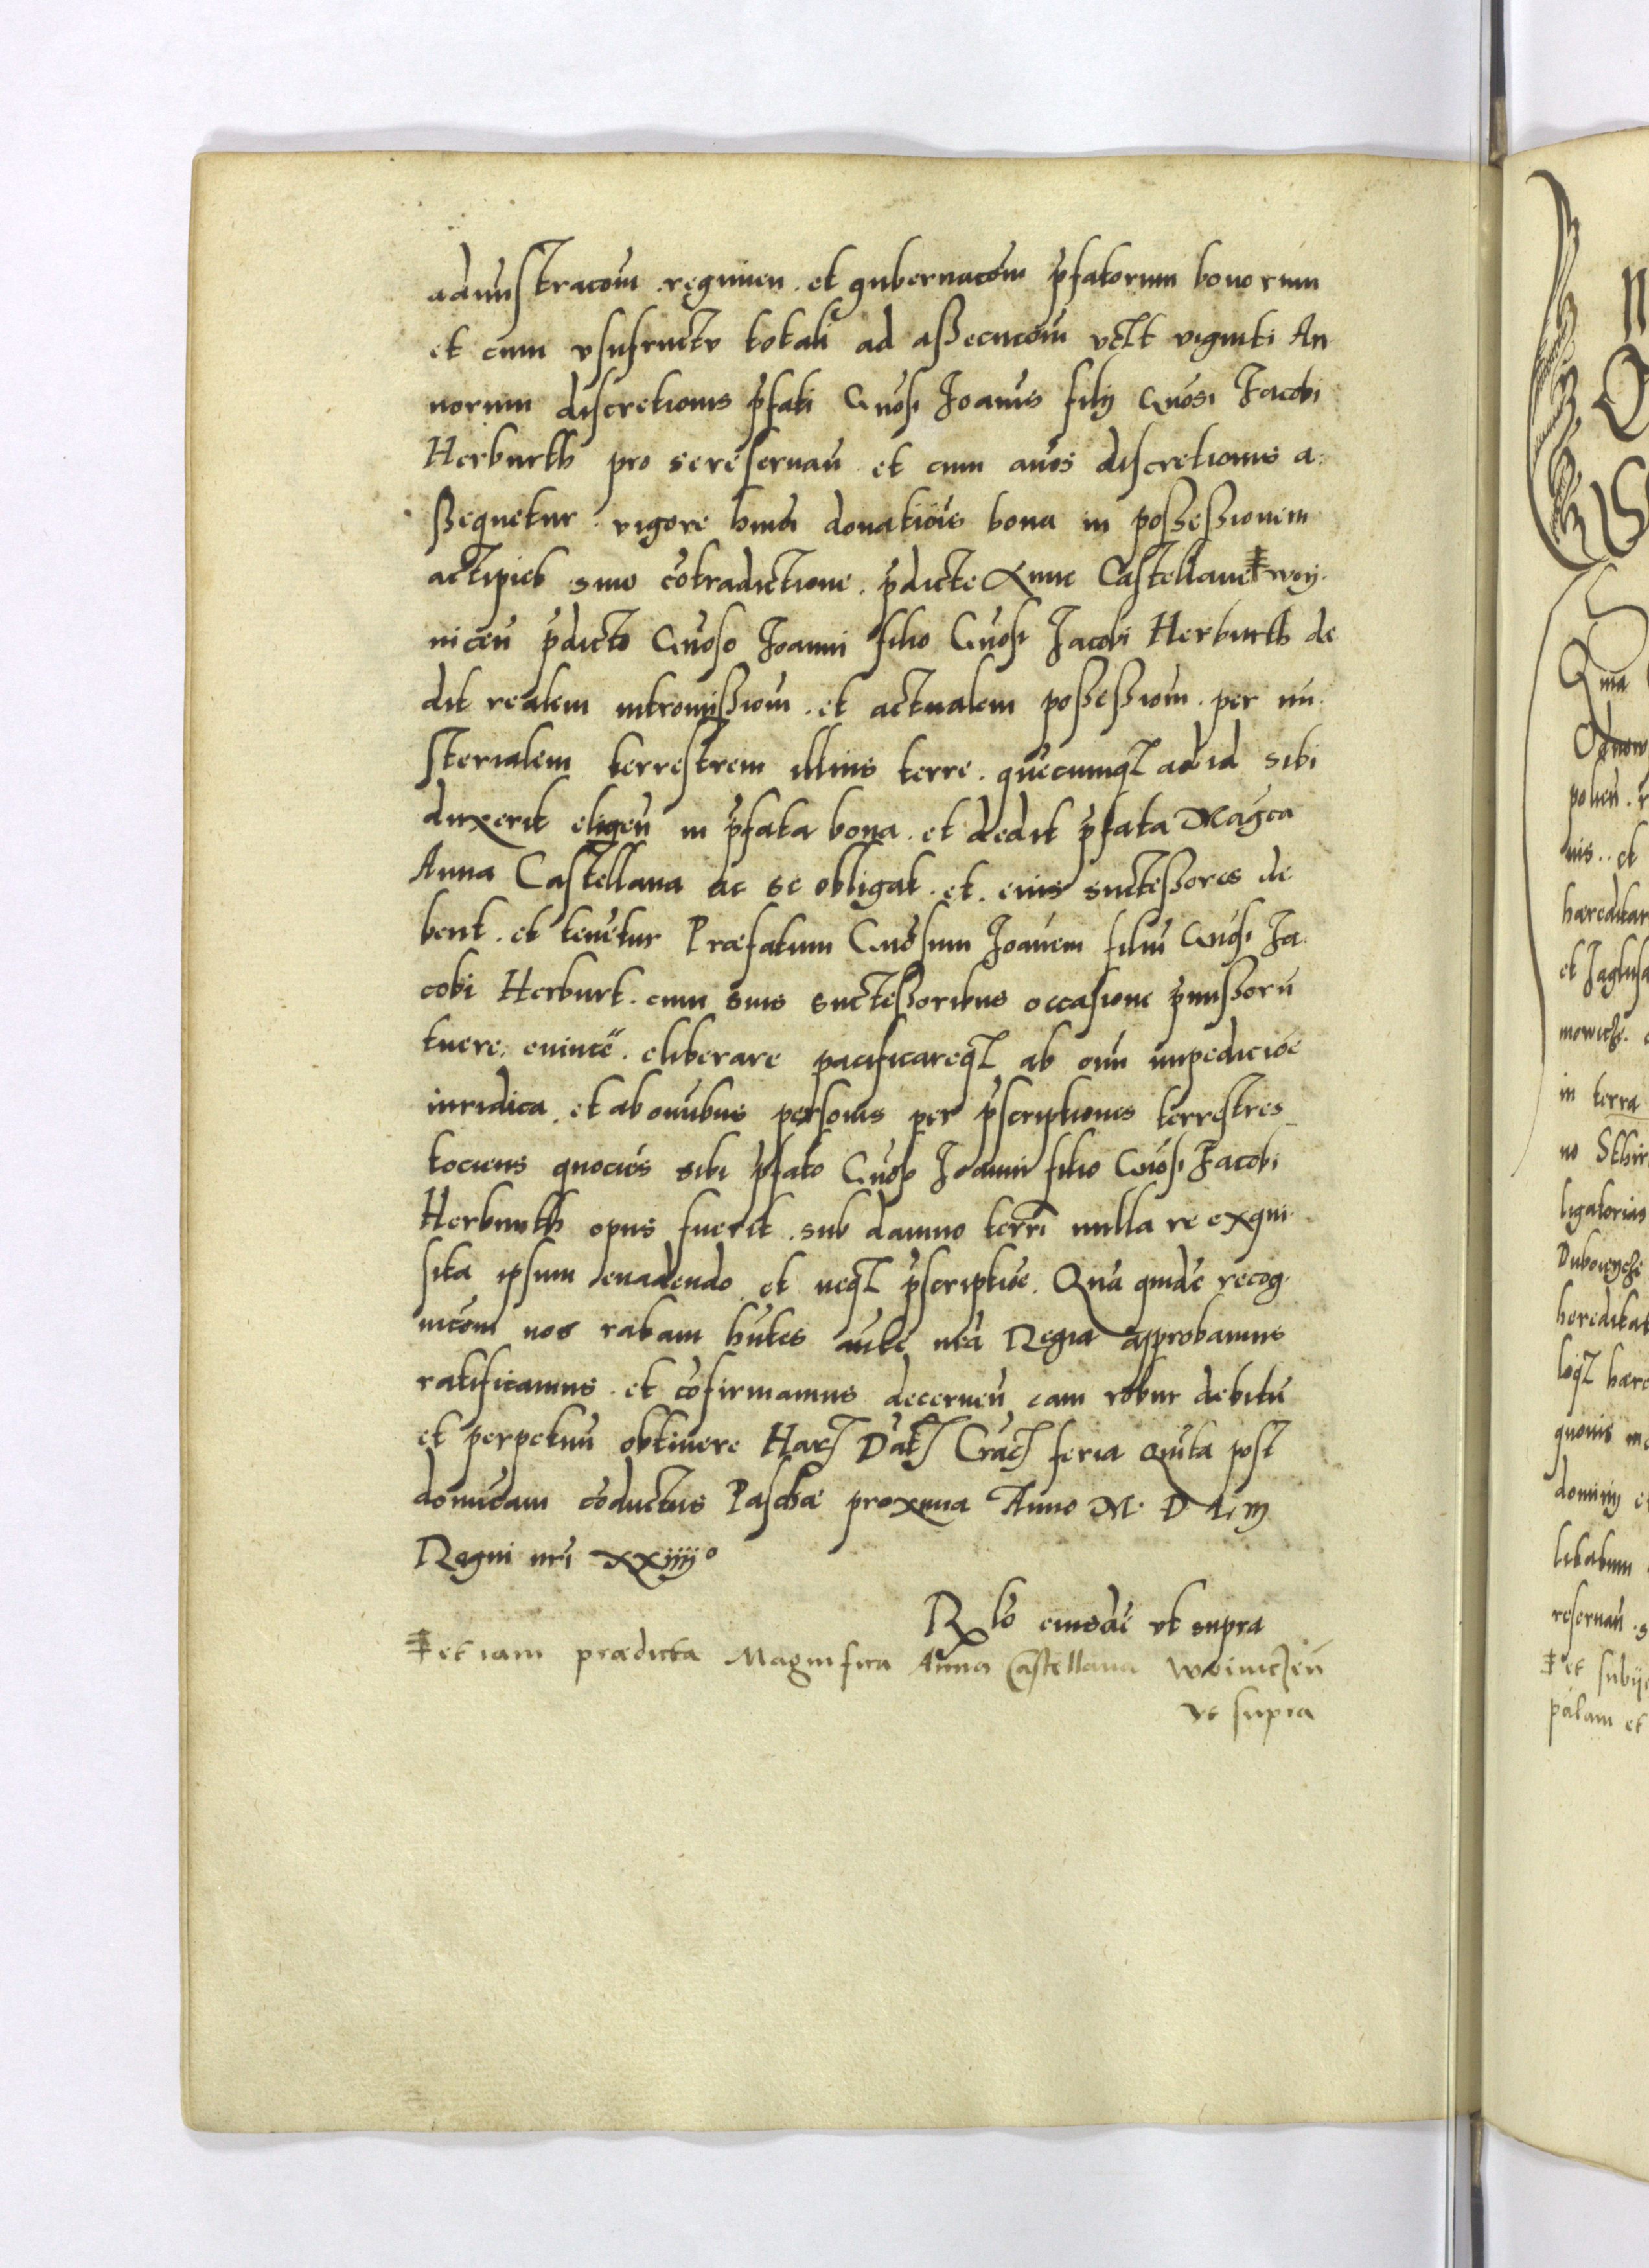 adminstracom̄ . regimen . et gubernacom̄ p̄fatorum bonorum
et cum vsufructv totali ad aßecucom̄ vt̄lt viginti An
norum discretionis p̄fati Gn̄osi Joan̄is filij Gn̄osi Jacobi
Herburth pro se reseruan̄ . et cum an̄os discretionis a:
ßequetur . vigore hm̄oi donatiōis bona in poßeßionem
actipiet sine cōtradictione . p̄dicte Anne Castellane ‡ woy.
niceñ p̄dicto Gn̄oso Joanni filio Gn̄osi Jacobi Herburth de
dit realem intromißiom̄ . et actualem poßeßiom̄ . per mi.
sterialem terrestrem illius terre . quēcumq ad id sibi
duxerit eligeñ in p̄fata bona . et dedit p̄fata Mag̃ca
Anna Castellana ac se obligat . et . eius succteßores de
bent . et tenētur Præfatum Gn̄osum Joan̄em filiū Gn̄osi Ja.
cobi Herburt . cum suis succteßoribus occasione p̄mißorū
tuere . euincē . eliberare pacificareq ab om̄i impediciōe
iuridica . et ab om̄ibus personis per p̄scriptiones terrestres
tociens quociēs sibi p̄fato Gn̄oso Joanni filio Gn̄osi Jacobi
Herburth opus fuerit . sub damno terrī nulla re exqui.
sita ipsum euadendo . et neq p̄scriptiōe . Quā quidē recog.
nicom̄ nos ratam hn̄tes aut̄e nr̄a Regia approbamus
ratificamus . et cōfirmamus decerneñ eam robur debitū
et perpetuū obtinere Har Dat Crac feria Quīta post
domīcam cōductus Paschæ proxima Anno M. D. L. iij
Regni nr̄i xxiiij°
Rlō eiusdē vt supra
‡ et iam prædicta Magnifica Anna Castellana woiniczeñ
vt supra